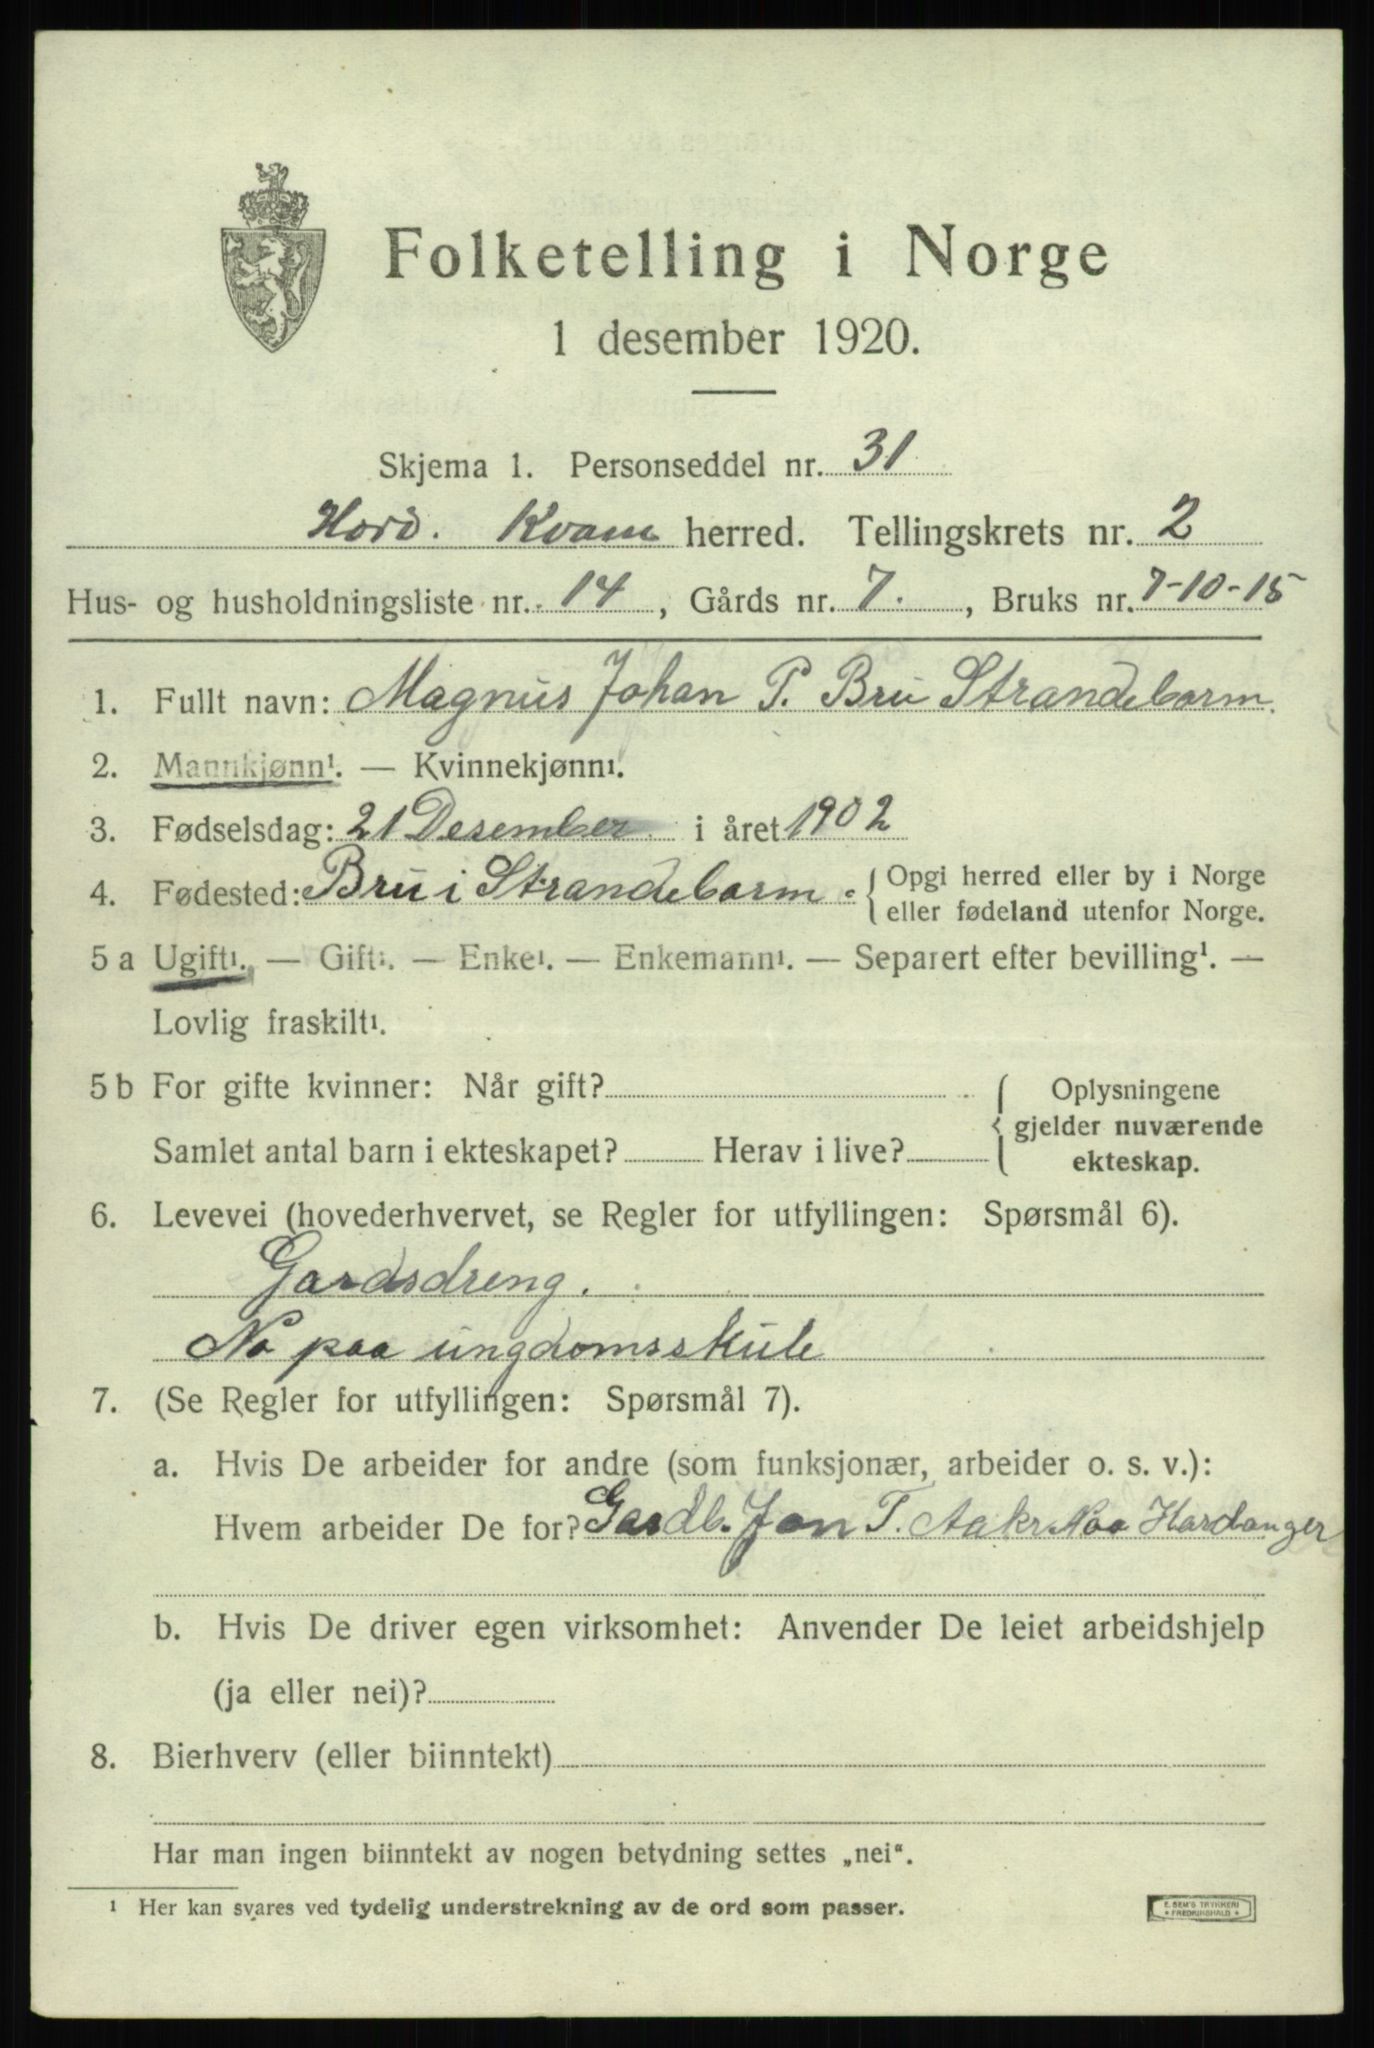 Folketelling i Norge
1 desember 1920.
Skjema 1. Personseddel nr. 31
Hord. Kvam herred. Tellingskrets nr. 2
Hus- og husholdningsliste nr. 14, Gårds nr. 7., Bruks nr. 7-10-15
1. Fullt navn: Magnus Johan P. Bru Strandebarm.
2. Mannkjønn¹. — Kvinnekjønn¹.
3. Fødselsdag: 21 Desember i året 1902
4. Fødested: Bru i Strandebarm. {Opgi herred eller by i Norge
eller fødeland utenfor Norge.
5 a Ugift¹. — Gift¹. — Enke¹. — Enkemann¹. — Separert efter bevilling¹. —
Lovlig fraskilt¹.
5 b For gifte kvinner: Når gift?
Samlet antal barn i ekteskapet? Herav i live?
{Oplysningene
gjelder nuværende
ekteskap.
6. Levevei (hovederhvervet, se Regler for utfyllingen: Spørsmål 6).
Gardsdreng.
No paa ungdomsskule
7. (Se Regler for utfyllingen: Spørsmål 7).
a. Hvis De arbeider for andre (som funksjonær, arbeider o. s. v.):
Hvem arbeider De for? Gardb. Jon T. Aakr Hardanger
b. Hvis De driver egen virksomhet: Anvender De leiet arbeidshjelp
(ja eller nei)?
8. Bierhverv (eller biinntekt)
Har man ingen biinntekt av nogen betydning settes „nei“.
¹ Her kan svares ved tydelig understrekning av de ord som passer.
E. SEM'S TRYKKERI
* FREDRIKSHALD *